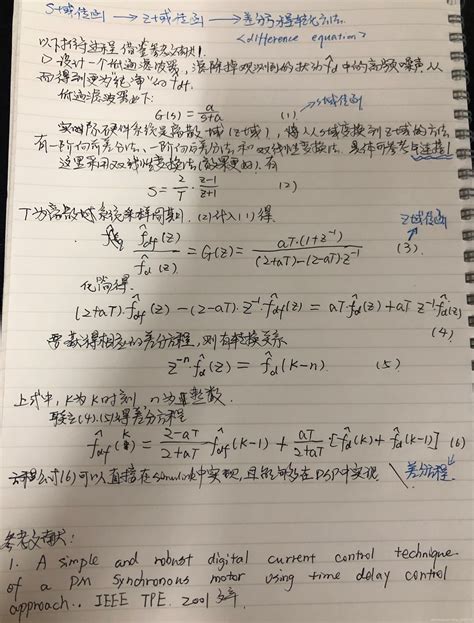 S域传函 → Z域传函 → 差分方程转化方法.
<difference equation>
以下推导过程借鉴参考文献1.
1> 设计一个低通滤波器, 滤除掉观测到的扰动 f̂d 中的高频噪声从
而得到更为"纯净"的 f̂df.
低通滤波器如下:
G(s) = a/(s+a) (1) → S域传函
实际系统是离散域(Z域), 将从S域变换到Z域的方法
有一阶前向差分法、一阶后向差分法和双线性变换法. 具体可参考
这里采用双线性变换法(效果更好), 有
S = 2/T · (z-1)/(z+1) (2)
T为离散域系统采样周期. (2)代入(1)得.
Z域传函
f̂df(z)/f̂d(z) = G(z) = aT·(1+z⁻¹)/((2+aT)-(2-aT)z⁻¹) (3)
化简得.
(2+aT)·f̂df(z) - (2-aT)·z⁻¹·f̂df(z) = aT·f̂d(z) + aT z⁻¹·f̂d(z)
(4)
要获得相应的差分方程, 则有转换关系
z⁻ⁿ·f̂d(z) = f̂d(k-n). (5)
上式中, K为K时刻, n为整数.
联立(4).(5)得差分方程
f̂df(k) = (2-aT)/(2+aT) f̂df(k-1) + aT/(2+aT) [f̂d(k) + f̂d(k-1)] (6)
公式(6)可以直接在simulink中实现, 且能够在DSP中实现 差分方程
参考文献:
1. A simple and robust digital current control technique
of a PM Synchronous motor using time delay control
approach.. IEEE TPE. 2001年.